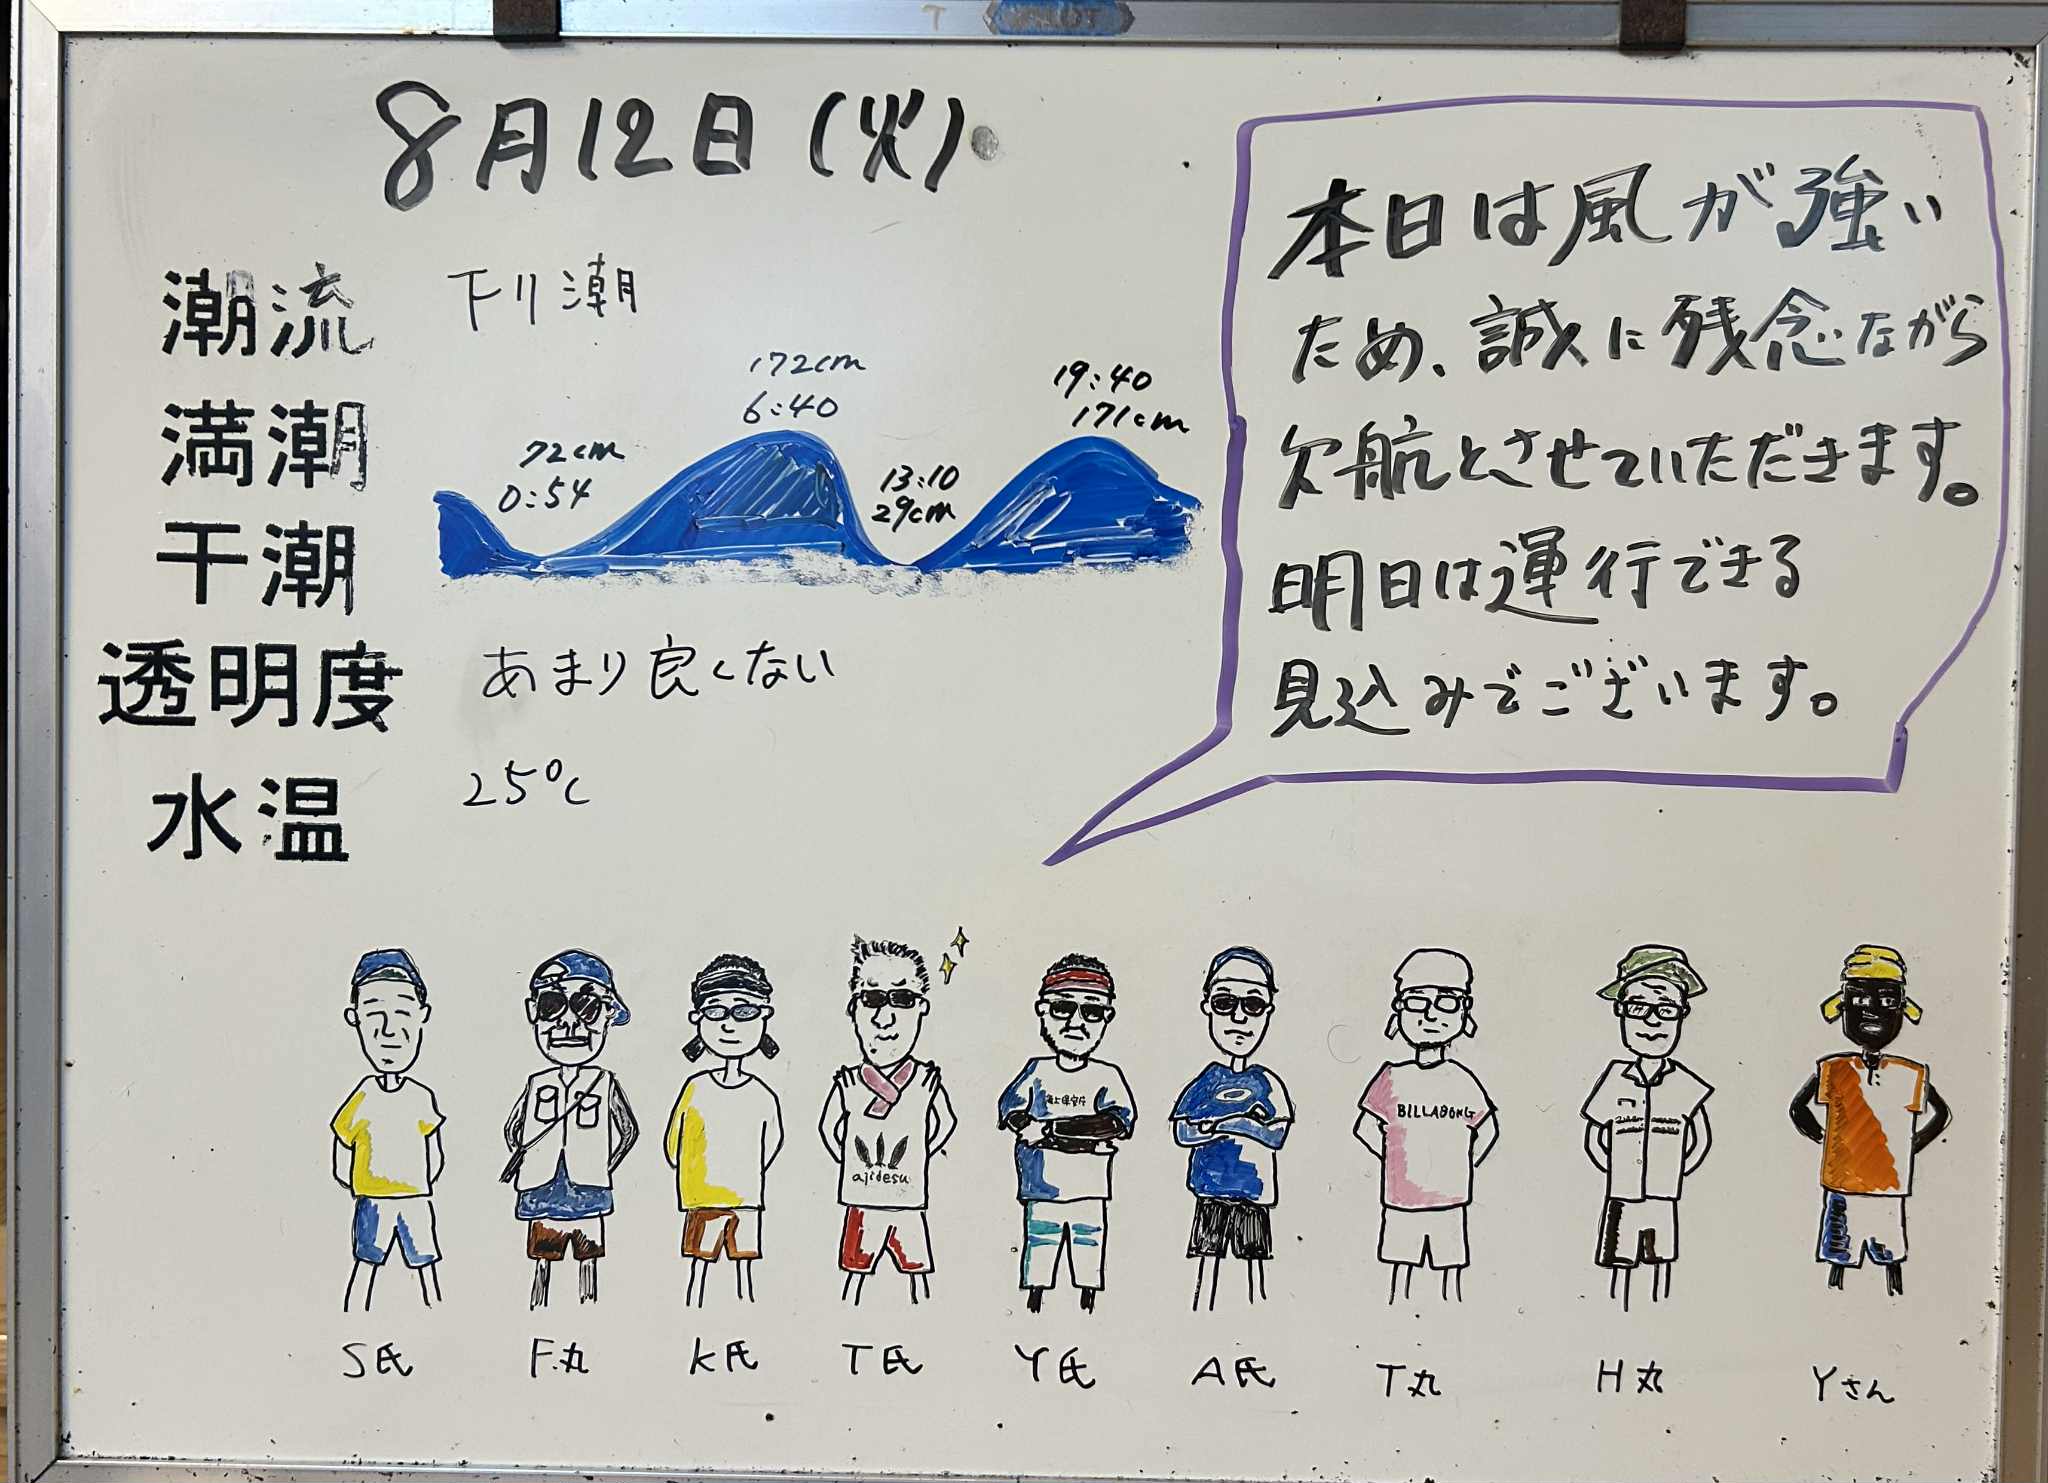 8月12日(火)
潮流 下り潮
満潮
干潮
72cm
0:54
172cm
6:40
13:10
29cm
19:40
171cm
透明度 あまり良くない
水温 25℃
本日は風が強い
ため、誠に残念ながら
欠航とさせていただきます。
明日は運行できる
見込みでございます。
ajidesu
海上保安庁
BILLABONG
S氏 F丸 K氏 T氏 Y氏 A氏 T丸 H丸 Yさん